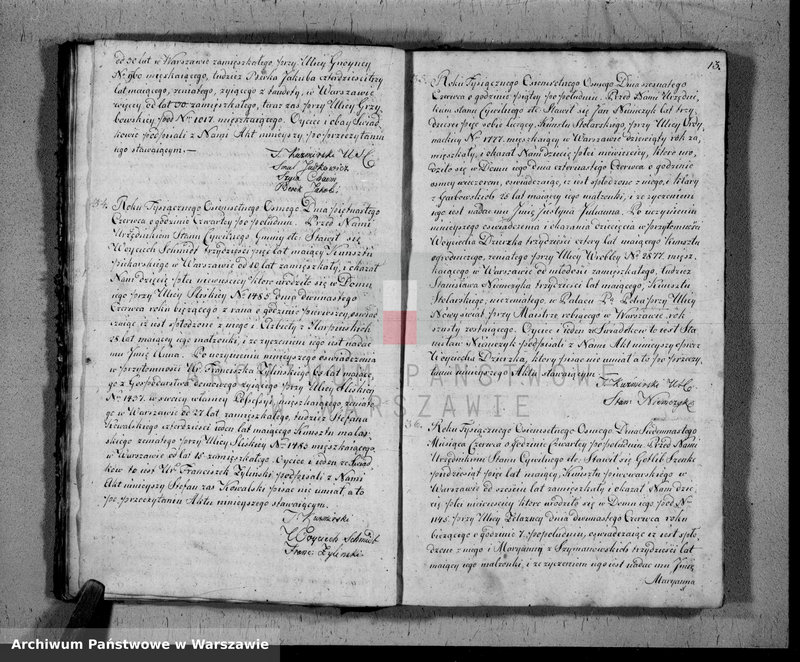 od 30 lat w Warszawie zamieszkałego przy Ulicy Gnoyney
Nº 960 mieszkaiącego, tudzież Berka Jakuba czterdzieści trzy
lat maiącego, żonatego, żyiącego z handlu, w Warszawie
więcey od lat 30 zamieszkałego, teraz zaś przy Ulicy Grzy
bowskiey pod Nº 1017 mieszkaiącego. Oyciec i obay Świad
kowie podpisali z Nami Akt ninieyszy po przeczytaniu
iego stawaiącym.
J. Kuzmirski USC
Berek Jakób
34. Roku Tysiącznego Ośmsetnego Osmego Dnia piętnastego
Czerwca o godzinie Czwartey po południu. Przed Nami
Urzędnikiem Stanu Cywilnego Gminy etc. Stawił się
Woyciech Schmidt trzydzieści pięć lat maiący Kunsztu
piekarskiego w Warszawie od 10 lat zamieszkały, i okazał
Nam dziecię płci niewieściey które urodziło się w Domu
iego przy Ulicy Śliskiey Nº 1483 dnia dwunastego
Czerwca roku bieżącego z rana o godzinie pierwszey, oświad
czaiąc iż iest spłodzone z niego i Elżbiety z Karpińskich
23 lat maiącey iego małżonki, i że życzeniem iego iest nadać
mu Imię Anna. Po uczynieniu ninieyszego oświadczenia
w przytomności Ur. Franciszka Żylińskiego 60 lat maiące
go z Gospodarstwa domowego żyiącego przy Ulicy Śliskiey
Nº 1437 w swoiey własney Possessyi mieszkaiącego żonate
go w Warszawie od 27 lat zamieszkałego, tudzież Stefana
Kowalskiego czterdzieści ieden lat maiącego Kunsztu malar
skiego żonatego przy Ulicy Śliskiey Nº 1483 mieszkaiącego
w Warszawie od lat 18 zamieszkałego. Oyciec i ieden ze Świad
ków to iest Ur. Franciszek Żyliński podpisali z Nami
Akt ninieyszy Stefan zaś Kowalski pisać nie umiał, a to
po przeczytaniu Aktu ninieyszego stawaiącym.
J. Kuzmirski
Woyciech Schmidt
Franc. Żylinski
13.
35. Roku Tysiącznego Ośmsetnego Osmego Dnia szesnastego
Czerwca o godzinie piątey po południu. Przed Nami Urzędni
kiem stanu Cywilnego etc. Stawił się Jan Niemczyk lat trzy
dzieści pięć sobie liczący, Kunsztu Stolarskiego, przy Ulicy Ordy
nackiey Nº 1777 mieszkaiący w Warszawie dziewiąty rok za
mieszkały, i okazał Nam dziecię płci niewieściey, które uro
dziło się w Domu iego dnia czternastego Czerwca o godzinie
osmey wieczorem, oświadczaiąc, iż iest spłodzone z niego, i Klary
z Garbowskich 28 lat maiącey iego małżonki, i że życzeniem
iego iest nadać mu Imię Justyna Julianna. Po uczynieniu
ninieyszego oświadczenia i okazania dziecięcia w przytomności
Woyciecha Dziuszka trzydzieści cztery lat maiącego Kunsztu
ogrodniczego, żonatego przy Ulicy Wróbley Nº 2877 miesz
kaiącego w Warszawie od młodości zamieszkałego, tudzież
Stanisława Niemczyka trzydzieści lat maiącego, Kunsztu
Stolarskiego, nieżonatego, w Pałacu przy Ulicy
Nowy Świat, przy Maistrze robiącego w Warszawie rok
szósty zostaiącego. Oyciec i ieden ze Świadków to iest Sta
nisław Niemczyk podpisali z Nami Akt ninieyszy oprócz
Woyciecha Dziuszka, który pisać nie umiał a to po przeczy
taniu ninieyszego Aktu stawaiącym
J. Kuzmirski USC
Stan. Niemczyk
36. Roku Tysiącznego Ośmsetnego Osmego Dnia Siedemnastego
Miesiąca Czerwca o godzinie Czwartey po południu. Przed Nami
Urzędnikiem Stanu Cywilnego etc. Stawił się Gotlib Szenk
pięćdziesiąt pięć lat maiący, Kunsztu piwowarskiego w
Warszawie od sześciu lat zamieszkały i okazał Nam dzie
cię płci niewieściey które urodziło się w Domu iego pod Nº
1495 przy Ulicy Żelazney dnia dwunastego Czerwca roku
bieżącego o godzinie 7. po południu, oświadczaiąc iż iest spło
dzone z niego i Maryanny z Szymanowskich trzydzieści lat
maiącey iego małżonki, i że życzeniem iego iest nadać mu Imię
Maryanna
ARCHIWUM PAŃSTWOWE
W WARSZAWIE
Archiwum Państwowe w Warszawie